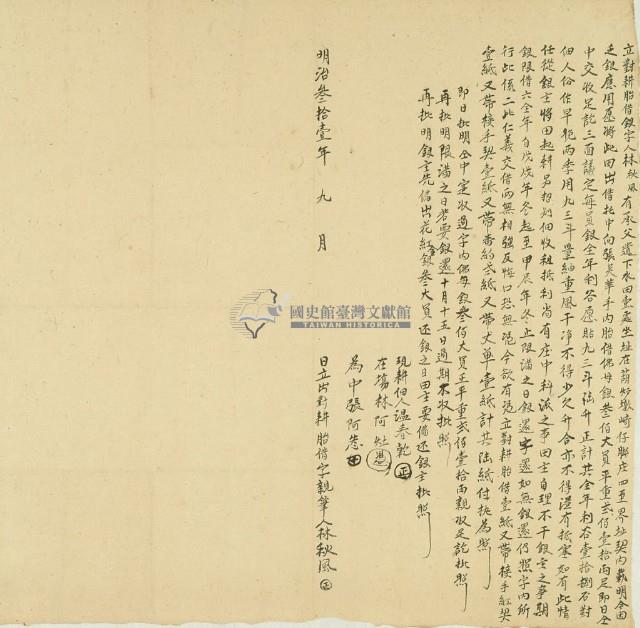 立對耕胎借銀字人林秋風有承父遺下水田壹處坐址在葫芦墩崎仔腳庄四至界址契內載明今因
乏銀應用愿將此田出借托中向張吳華手內胎借佛母銀叁佰大員平重弍佰壹拾両足即日仝
中交收足訖三面議定每員銀全年利谷愿貼九三斗法升正計共全年利谷壹拾捌石對
佃人份作早晚两季用九三斗量紬重風干淨不得少欠升合亦不得湿有抵塞如有此情
任從銀主將田起耕另招別佃收租抵利尚有庄中科派之事田主自理不干銀主之事期
銀限借六全年自戊戌年冬起至甲辰年冬止限滿之日銀還字還如無銀還仍照字內所
行此係二比仁義交借兩無相强反悔口恐無憑今欲有憑立對耕胎借壹紙又帶接手紅契
壹紙又帶接手契壹紙又帶番約弍紙又帶丈单壹紙計共陆紙付执為照
即日批明仝中寔收過字內佛母銀叁佰大員正平重弍佰壹拾両親收足訖批照
再批明限滿之日若要銀還十月十五日過期不收批照
再批明銀主先備出花紅銀叁大員还銀之日田主要備还銀主批照
現耕佃人温春乾
在塲林阿
為中張阿
明治叁拾壹年 九 月 日立出對耕胎借字親筆人林秋風
國史館臺灣文獻館
TAIWAN HISTORICA